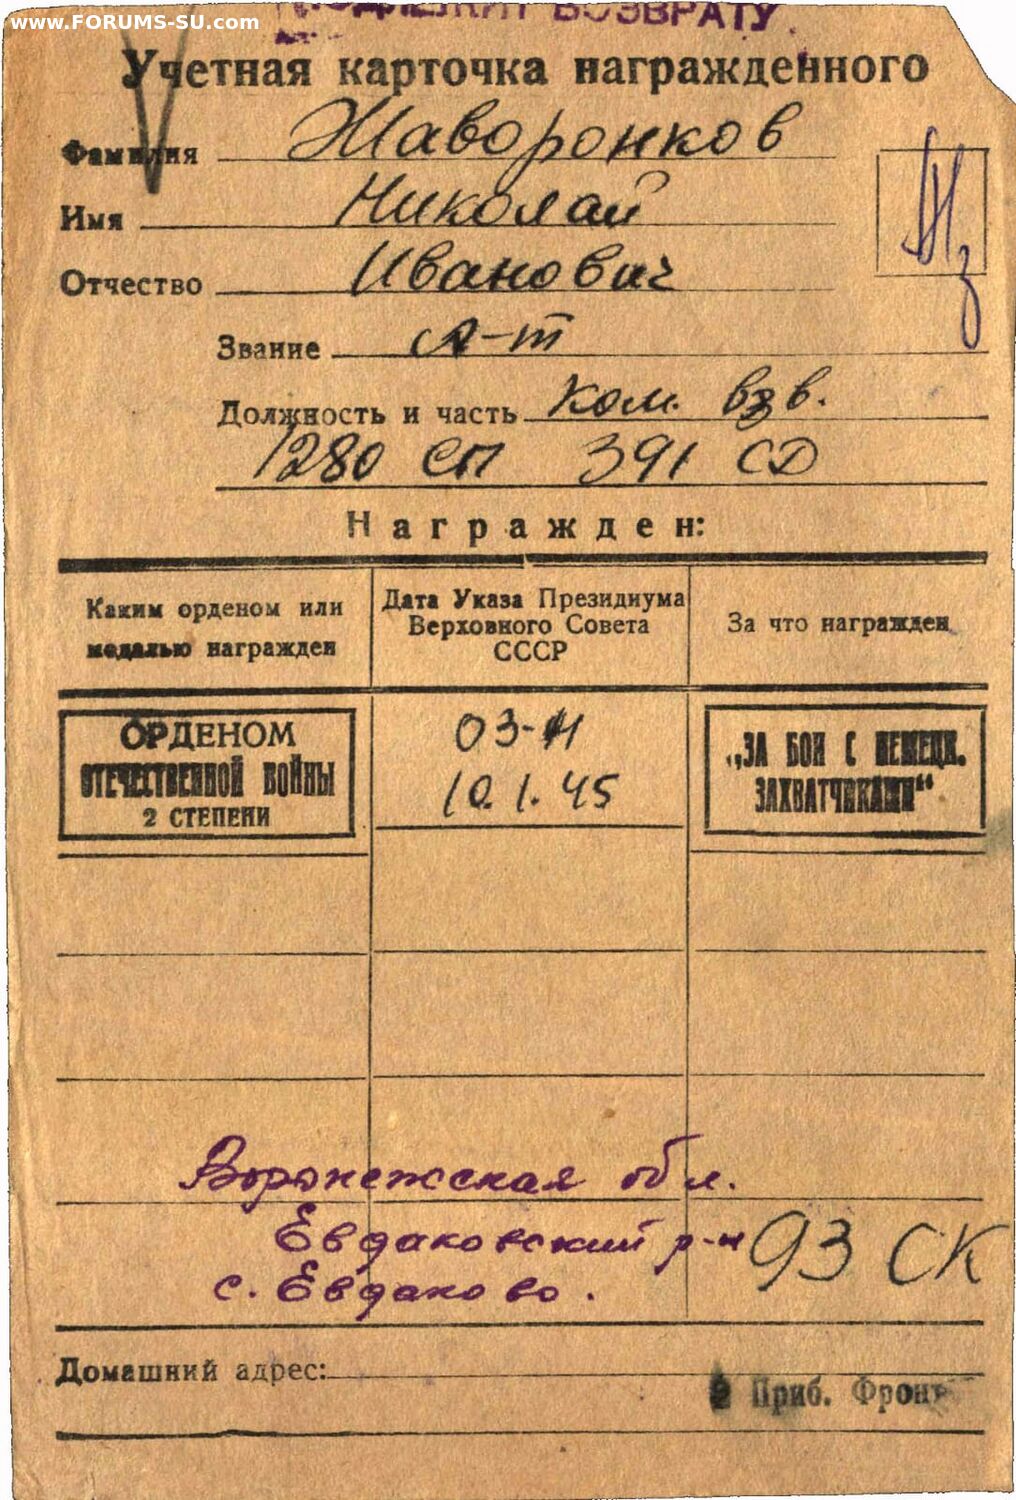 www.FORUMS-SU.com
ПОДЛЕЖИТ ВОЗВРАТУ
Учетная карточка награжденного
Фамилия Жаворонков
Имя Николай
Отчество Иванович
Звание л-т
Должность и часть ком. взв.
1280 СП 391 СД
Награжден:
Каким орденом или
медалью награжден
Дата Указа Президиума
Верховного Совета
СССР
За что награжден
ОРДЕНОМ
ОТЕЧЕСТВЕННОЙ ВОЙНЫ
2 СТЕПЕНИ
03-Н
10.1.45
„ЗА БОИ С НЕМЕЦК.
ЗАХВАТЧИКАМИ“
Воронежская обл.
Евдаковский р-н
с. Евдаково.
93 СК
Домашний адрес:
2 Приб. Фронт